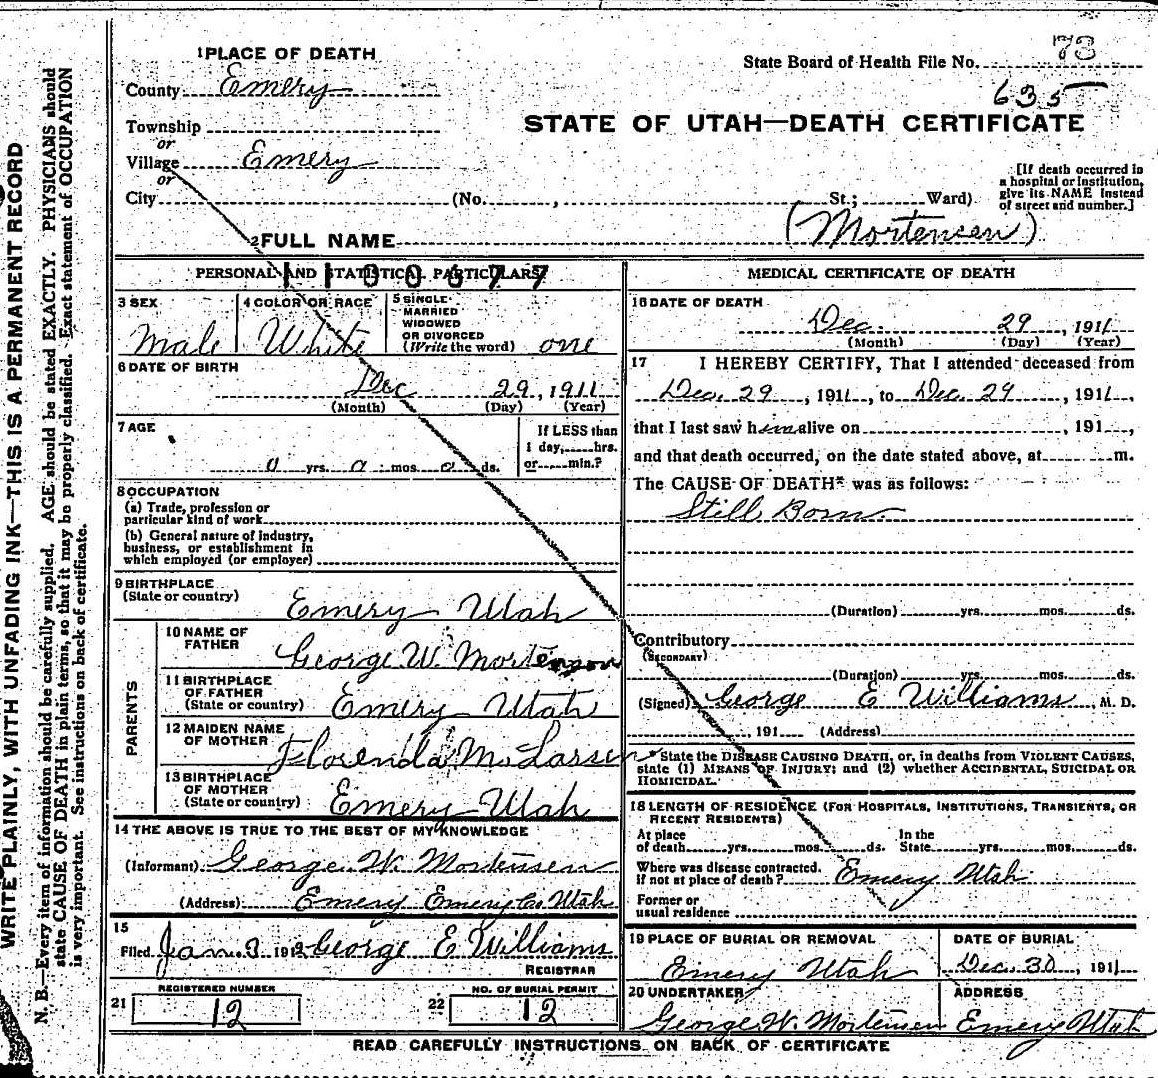 WRITE PLAINLY, WITH UNFADING INK—THIS IS A PERMANENT RECORD
N. B.—Every item of information should be carefully supplied. AGE should be stated EXACTLY. PHYSICIANS should
state CAUSE OF DEATH in plain terms, so that it may be properly classified. Exact statement of OCCUPATION
is very important. See instructions on back of certificate.
1 PLACE OF DEATH
County Emery
Township
or
Village Emery
or
City (No. , St.; Ward)
State Board of Health File No. 73
635
STATE OF UTAH—DEATH CERTIFICATE
[If death occurred in
a hospital or institution,
give its NAME instead
of street and number.]
2 FULL NAME (Mortensen)
PERSONAL AND STATISTICAL PARTICULARS
1100677
3 SEX
Male
4 COLOR OR RACE
White
5 SINGLE
MARRIED
WIDOWED
OR DIVORCED
(Write the word) one
6 DATE OF BIRTH
Dec 29, 1911
(Month) (Day) (Year)
7 AGE
0 yrs. 0 mos. 0 ds.
If LESS than
1 day, hrs.
or min.?
8 OCCUPATION
(a) Trade, profession or
particular kind of work
(b) General nature of industry,
business, or establishment in
which employed (or employer)
9 BIRTHPLACE
(State or country) Emery Utah
PARENTS
10 NAME OF
FATHER George W. Mortenson
11 BIRTHPLACE
OF FATHER
(State or country) Emery Utah
12 MAIDEN NAME
OF MOTHER Florenda M. Larsen
13 BIRTHPLACE
OF MOTHER
(State or country) Emery Utah
14 THE ABOVE IS TRUE TO THE BEST OF MY KNOWLEDGE
(Informant) George W. Mortensen
(Address) Emery Emery Co. Utah
15
Filed Jan. 3 1912 George E Williams
REGISTRAR
21 REGISTERED NUMBER
12
22 NO. OF BURIAL PERMIT
12
MEDICAL CERTIFICATE OF DEATH
16 DATE OF DEATH
Dec. 29, 1911
(Month) (Day) (Year)
17 I HEREBY CERTIFY, That I attended deceased from
Dec. 29, 1911, to Dec. 29, 1911,
that I last saw him alive on , 191 ,
and that death occurred, on the date stated above, at m.
The CAUSE OF DEATH* was as follows:
Still Born
(Duration) yrs. mos. ds.
Contributory
(SECONDARY)
(Duration) yrs. mos. ds.
(Signed) George E Williams, M. D.
, 191 (Address)
*State the DISEASE CAUSING DEATH, or, in deaths from VIOLENT CAUSES,
state (1) MEANS OF INJURY; and (2) whether ACCIDENTAL, SUICIDAL OR
HOMICIDAL.
18 LENGTH OF RESIDENCE (FOR HOSPITALS, INSTITUTIONS, TRANSIENTS, OR
RECENT RESIDENTS)
At place
of death yrs. mos. ds.
In the
State yrs. mos. ds.
Where was disease contracted.
if not at place of death? Emery Utah
Former or
usual residence
19 PLACE OF BURIAL OR REMOVAL
Emery Utah
DATE OF BURIAL
Dec. 30, 1911
20 UNDERTAKER
George W. Mortensen
ADDRESS
Emery Utah
READ CAREFULLY INSTRUCTIONS ON BACK OF CERTIFICATE